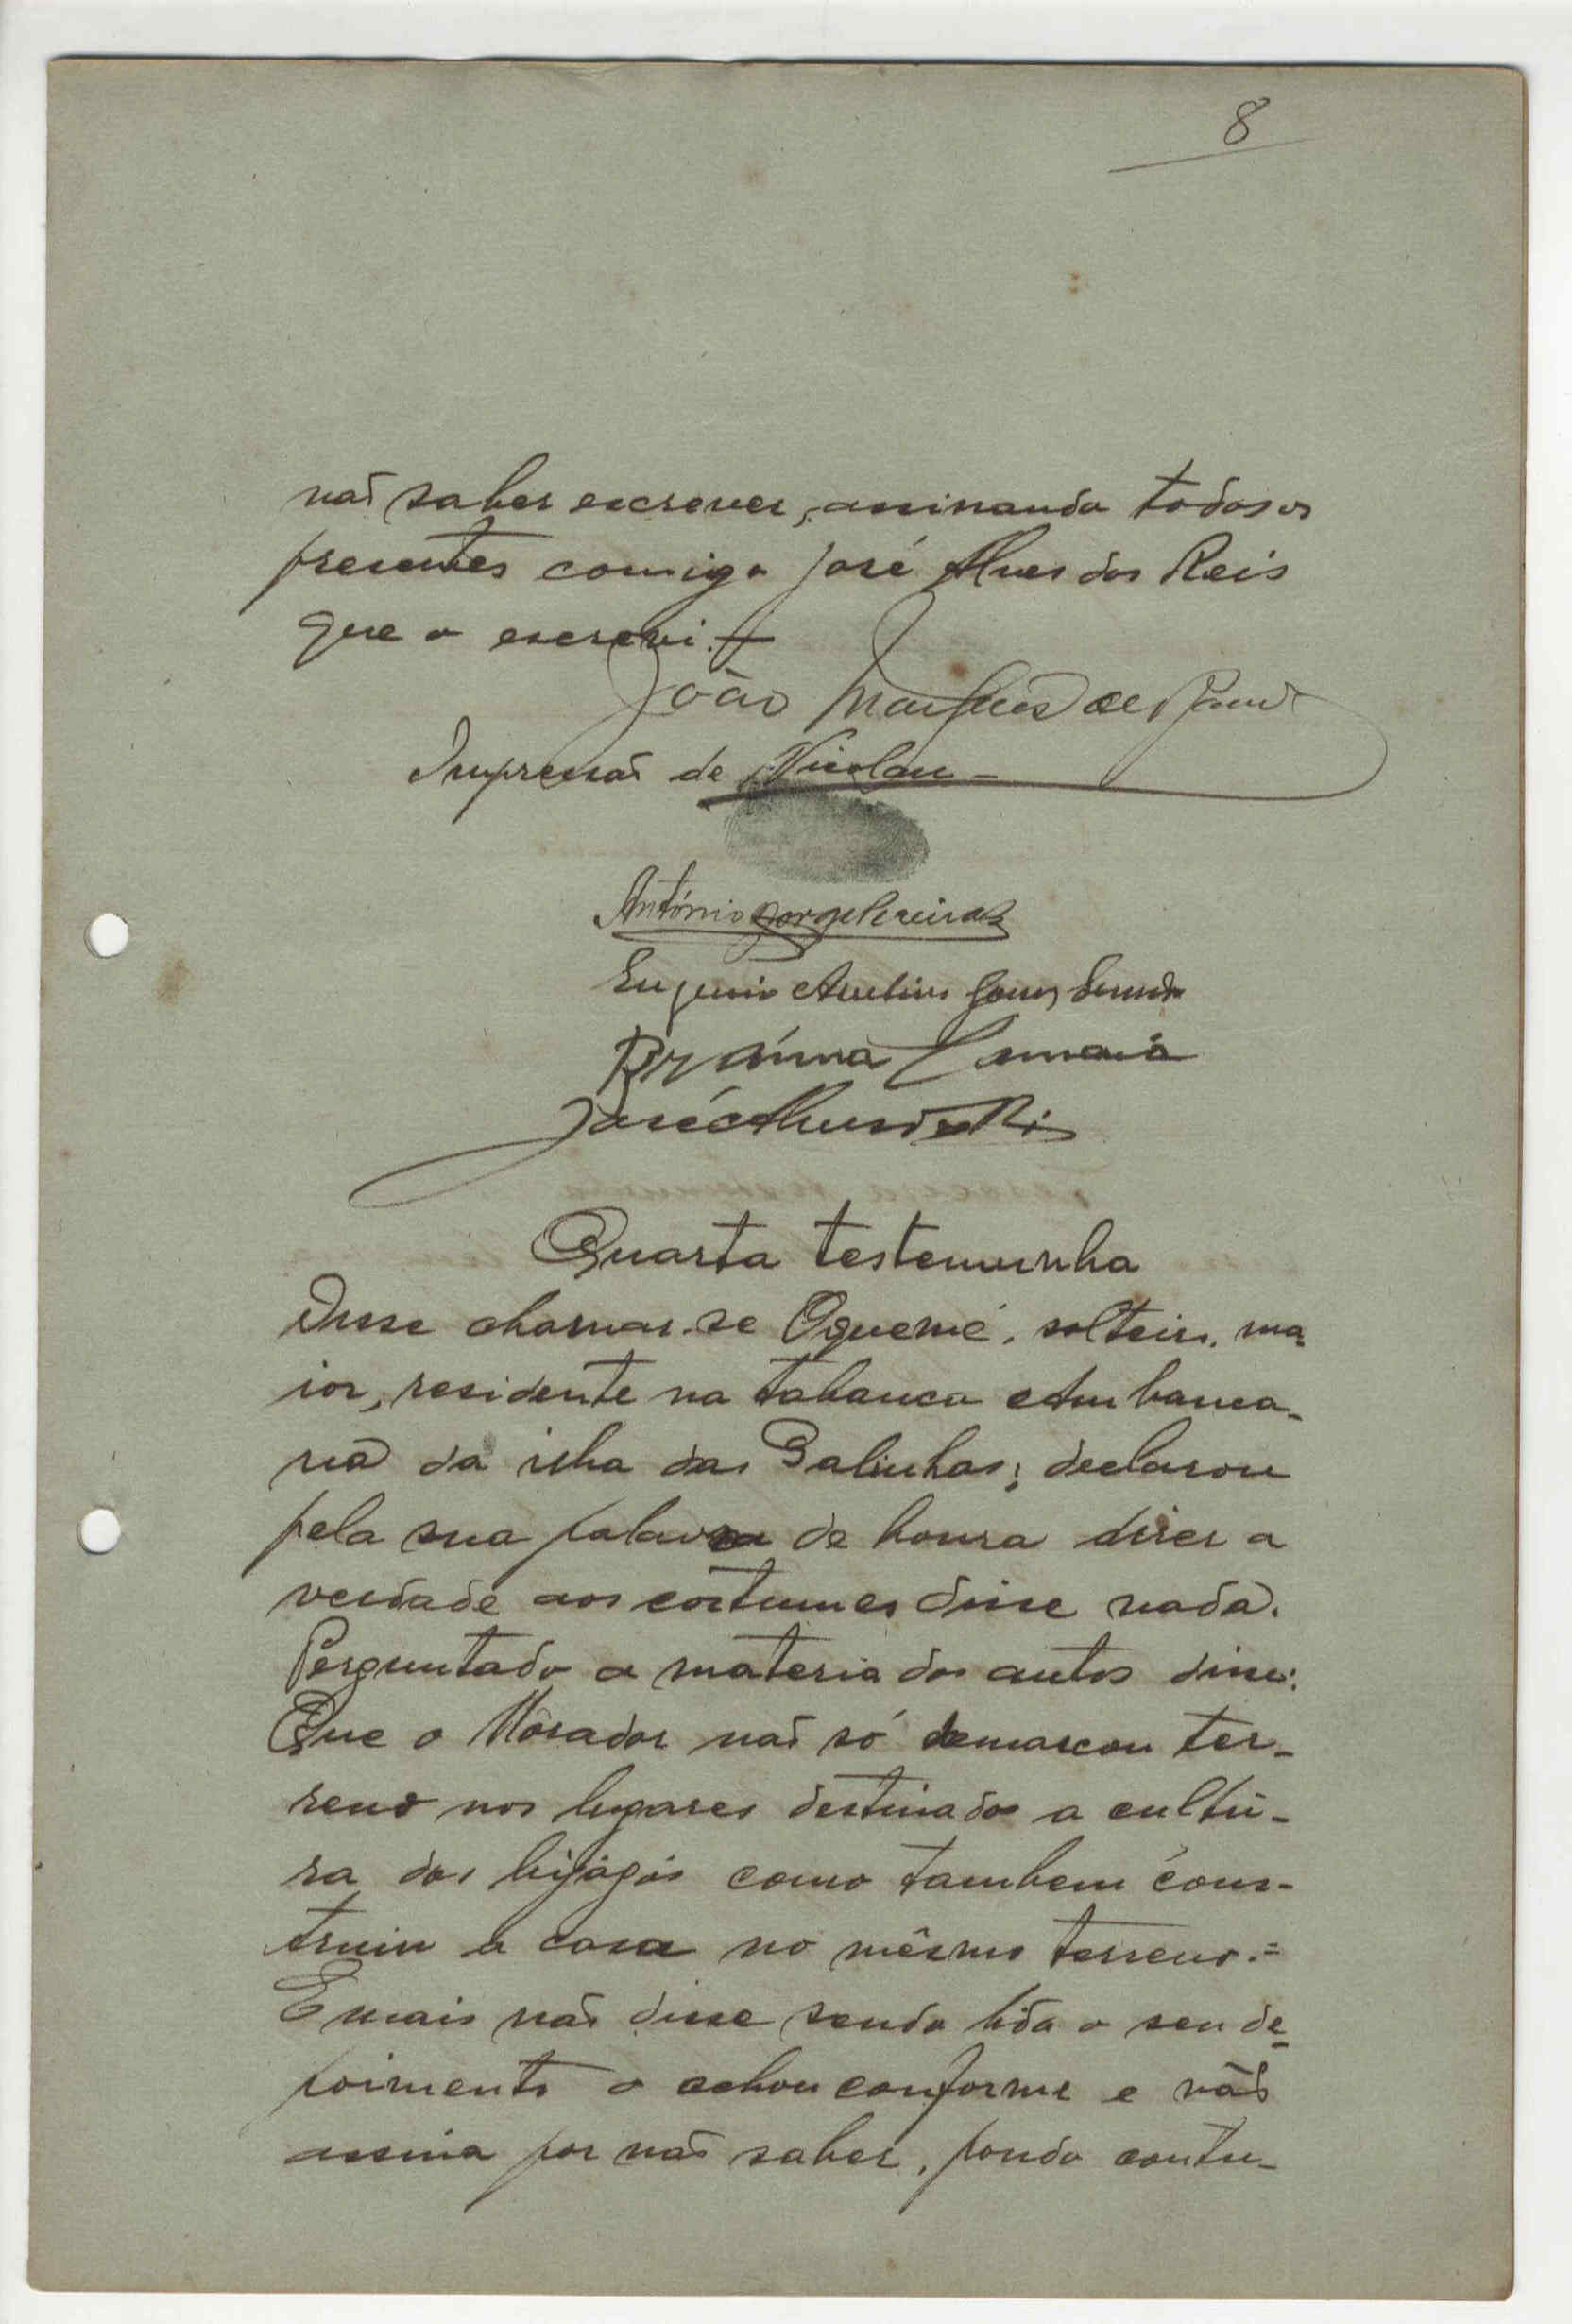 8
não saber escrever, assinando todos os
presentes comigo José Alves dos Reis
que o escrevi.
João Marques de
Impressão de Nicolau
António Jorge
Eugenio Avelino Gomes
José Alves dos Reis
Quarta testemunha
Disse chamar-se Oquemé, solteiro, ma-
ior, residente na tabanca Ambanca-
nã da ilha das Galinhas; declarou
pela sua palavra de honra diser a
verdade aos costumes disse nada.
Perguntado a materia dos autos disse:
Que o Morador não só demarcou ter-
reno nos lugares destinados a cultu-
ra dos bijágós como tambem cons-
truiu a casa no mêsmo terreno.=
E mais não disse sendo lido o seu de-
poimento o achou conforme e não
assina por não saber, pondo contu-